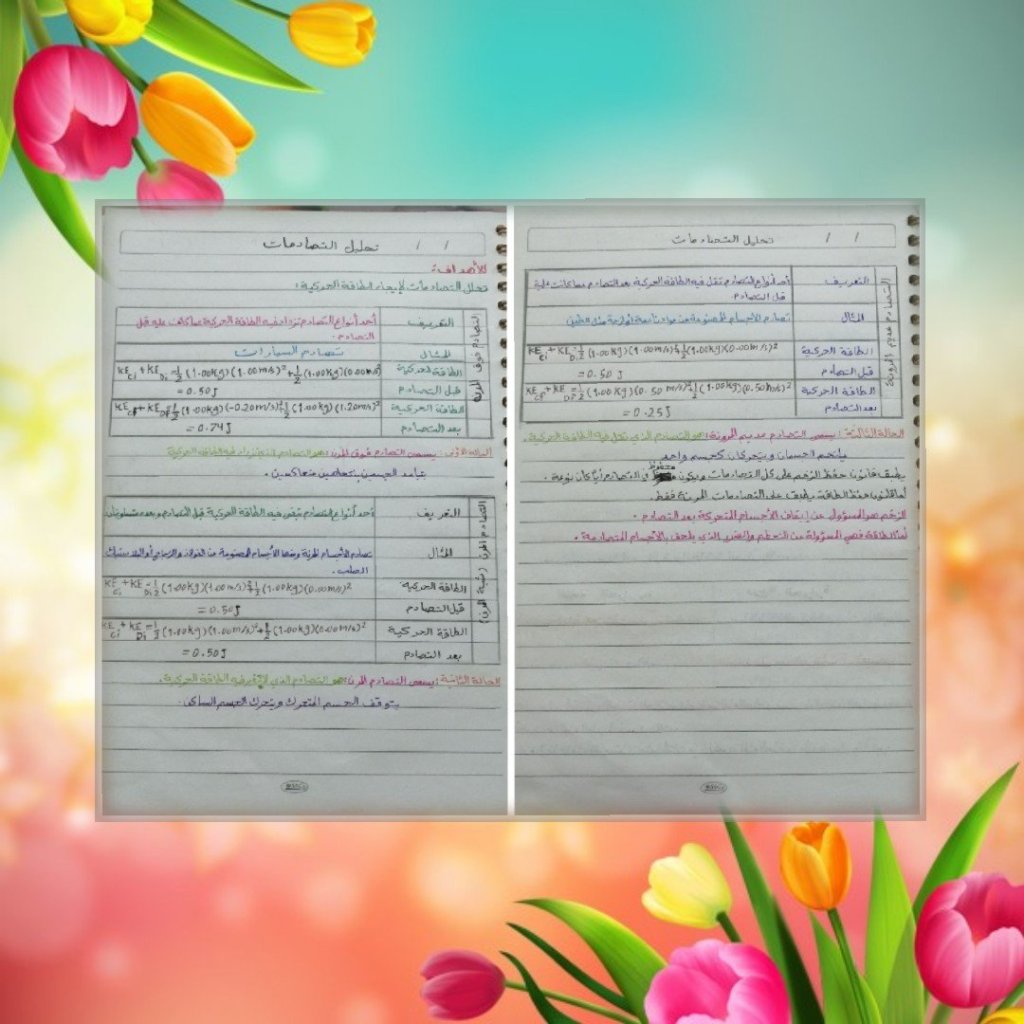 تحليل التصادمات / /
الأهداف:
تحلل التصادمات لإيجاد الطاقة الحركية:
التصادم فوق المرن
التعريف
أحد أنواع التصادم تزداد فيه الطاقة الحركية عما كانت عليه قبل
التصادم.
المثال
تصادم السيارات
الطاقة الحركية
قبل التصادم
KE_ci + KE_Di = 1/2 (1.00kg)(1.00m/s)² + 1/2 (1.00kg)(0.00m/s)²
= 0.50J
الطاقة الحركية
بعد التصادم
KE_cf + KE_Df = 1/2 (1.00kg)(-0.20m/s)² + 1/2 (1.00kg)(1.20m/s)²
= 0.74J
الحالة الأولى: يسمى التصادم فوق المرن: هو التصادم الذي تزداد فيه الطاقة الحركية
يتباعد الجسمين بتجاهين متعاكسين.
التصادم المرن
التعريف
أحد أنواع التصادم تبقى فيه الطاقة الحركية قبل التصادم وبعده متساويتان
المثال
تصادم الأجسام المرنة ومنها الأجسام المصنوعة من الفولاذ والزجاج أو البلاستيك
الصلب.
الطاقة الحركية
قبل التصادم
KE_ci + KE_Di = 1/2 (1.00kg)(1.00m/s)² + 1/2 (1.00kg)(0.00m/s)²
= 0.50J
الطاقة الحركية
بعد التصادم
KE_ci + KE_Di = 1/2 (1.00kg)(1.00m/s)² + 1/2 (1.00kg)(0.00m/s)²
= 0.50J
الحالة الثانية: يسمى التصادم المرن: هو التصادم الذي لا تتغير فيه الطاقة الحركية.
يتوقف الجسم المتحرك ويتحرك الجسم الساكن.
تحليل التصادمات / /
التصادم عديم المرونة
التعريف
أحد أنواع التصادم تقل فيه الطاقة الحركية بعد التصادم عما كانت عليه
قبل التصادم.
المثال
تصادم الأجسام المصنوعة من مواد ناعمة لزجة مثل الطين
الطاقة الحركية
قبل التصادم
KE_ci + KE_Di = 1/2 (1.00kg)(1.00m/s)² + 1/2 (1.00kg)(0.00m/s)²
= 0.50J
الطاقة الحركية
بعد التصادم
KE_cf + KE_Df = 1/2 (1.00kg)(0.50m/s)² + 1/2 (1.00kg)(0.50m/s)²
= 0.25J
الحالة الثالثة: يسمى التصادم عديم المرونة: هو التصادم الذي تقل فيه الطاقة الحركية.
يلتحم الجسمان ويتحركان كجسم واحد
يطبق قانون حفظ الزخم على كل التصادمات ويكون محفوظ في التصادم أيًا كان نوعه.
أما قانون حفظ الطاقة يطبق على التصادمات المرنة فقط.
الزخم هو المسؤول عن إيقاف الأجسام المتحركة بعد التصادم.
أما الطاقة فهي المسؤولة عن التحطم والضرر الذي يلحق بالأجسام المتصادمة.